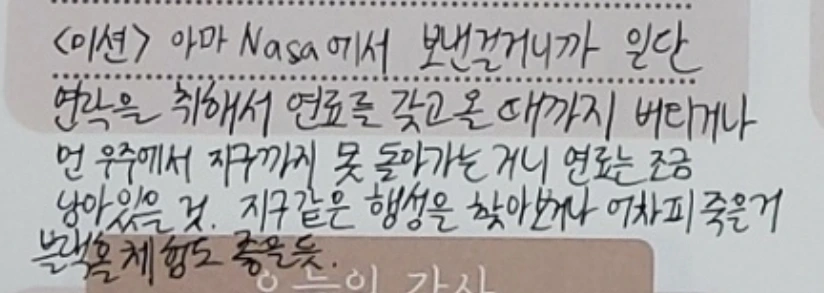 <미션> 아마 Nasa에서 보낸걸거니까 일단
연락을 취해서 연료를 갖고 올 때까지 버티거나
먼 우주에서 지구까지 못 돌아가는 거니 연료는 조금
남아있을 것. 지구같은 행성을 찾아보거나 어차피 죽은거
블랙홀 체험도 좋을듯.
오늘의 감사